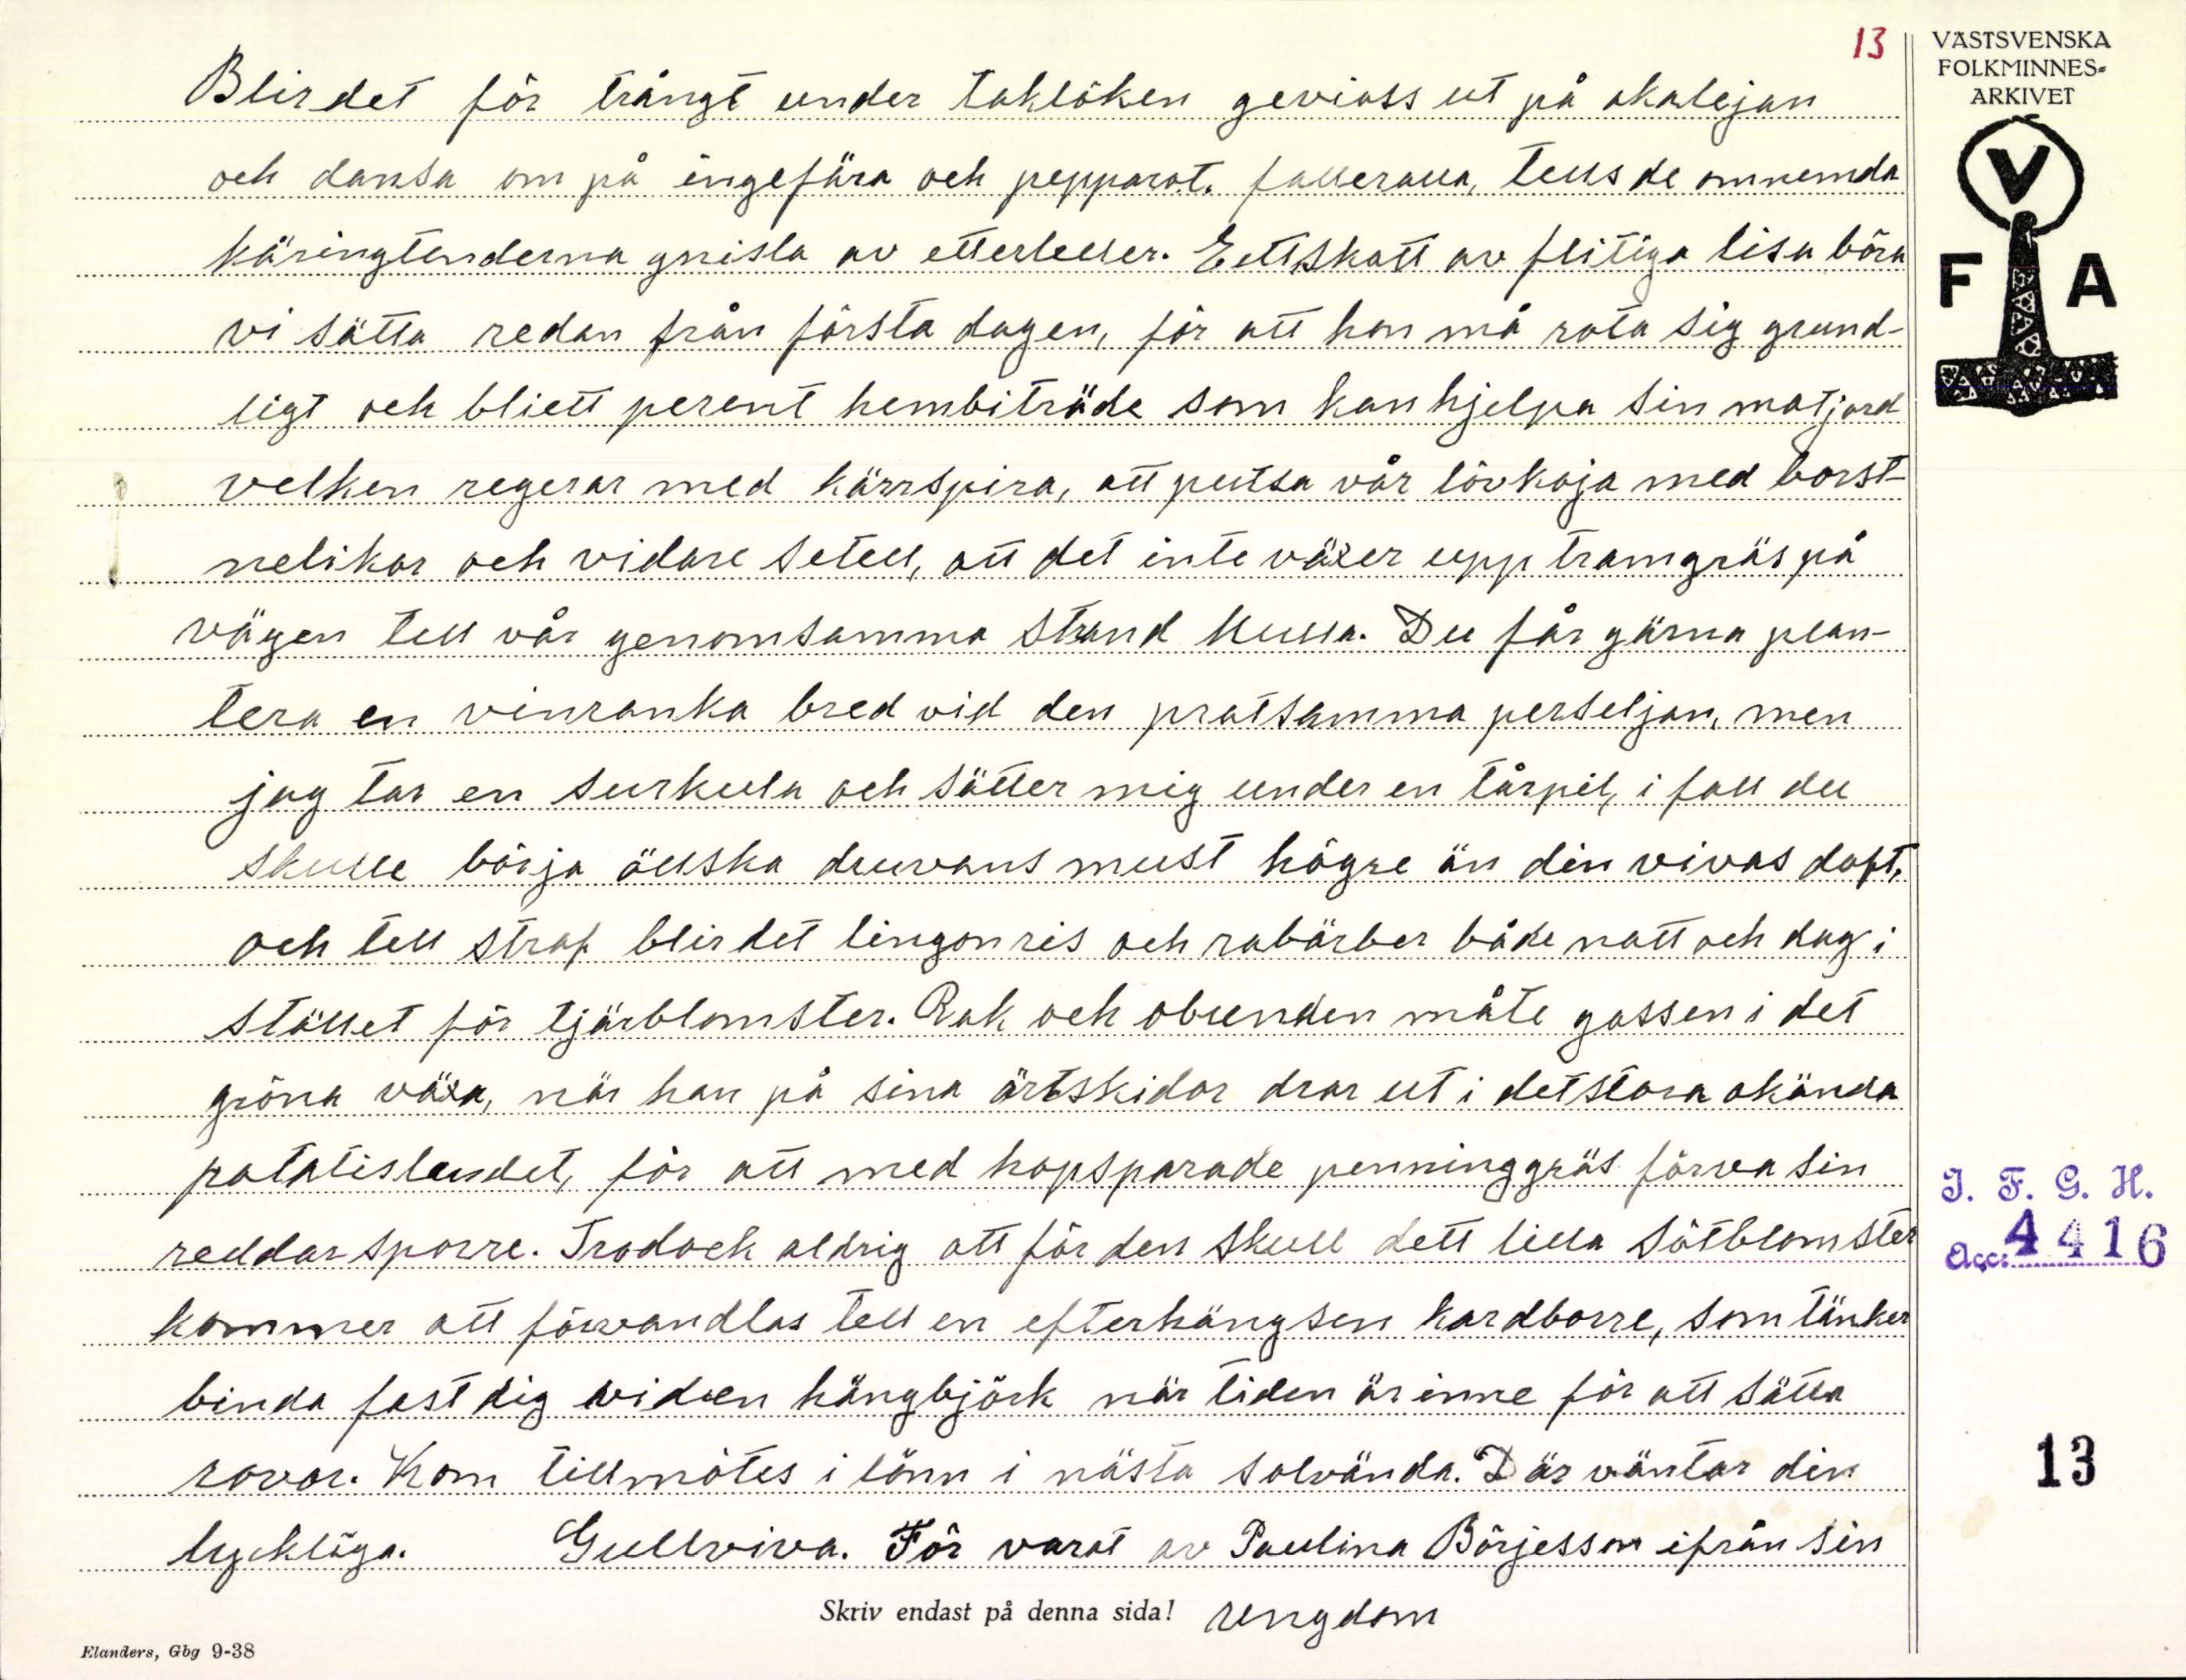 13
VÄSTSVENSKA
FOLKMINNES-
ARKIVET
V
F A
Blir det för trångt under taklöken geviass ut på akalejan
och dansa om på ingefära och pepparot. falleralla, tells de omnemda
käringtenderna gnisla av etterleller. Ett skott av flitiga lisa böra
vi sätta redan från första dagen, för att hon må rota sig grund-
ligt och bli ett perent hembiträde som kan hjelpa sin matjord
velken regerar med kärrspira, att putsa vår lövkoja med borst-
nelikor och vidare se tell, att det inte växer upp tramgräs på
vägen tell vår genomsamma strand kulla. Du får gärna plan-
tera en vinranka bred vid den pratsamma perseljan, men
jag tar en surkula och sätter mig under en tårpil, i fall du
skulle börja ällska druvans must högre än din vivas doft,
och tell straf blir det lingonris och rabärber båke natt och dag i
stället för tjärblomster. Rak och obunden måte gossen i det
gröna växa, när han på sina ärtskidor drar ut i det stora okända
potatislandet, för att med hopsparade penninggräs förvea sin
reddarsporre. Tro dock aldrig att för den skull dett lilla sötblomster
kommer att förvandlas tell en efterhängsen kardborre, som tänker
binda fast dig vid en hängbjörk när tiden är inne för att sätta
rovor. Kom till mötes i lönn i nästa solvända. Där väntar din
lycklöga. Gullviva. För varat av Paulina Börjesson ifrån sin
Skriv endast på denna sida! ungdom
Elanders, Gbg 9-38
I. F. G. H.
Acc. 4416
13